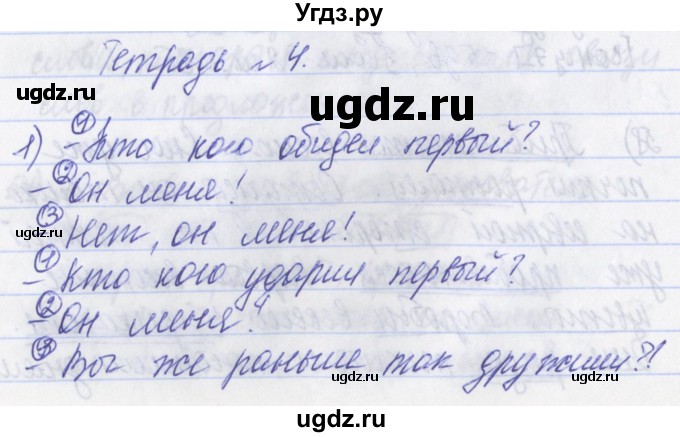 Угдз.ру
Тетрадь № 4.
ugdz.ru
ugdz.ru
ugdz.ru
1) – ① Кто кого обидел первый?
– ② Он меня!
– ③ Нет, он меня!
ugdz.ru
ugdz.ru
– ① Кто кого ударил первый?
– ② Он меня!
ugdz.ru
– Вы же раньше так дружили?!
ugdz.ru